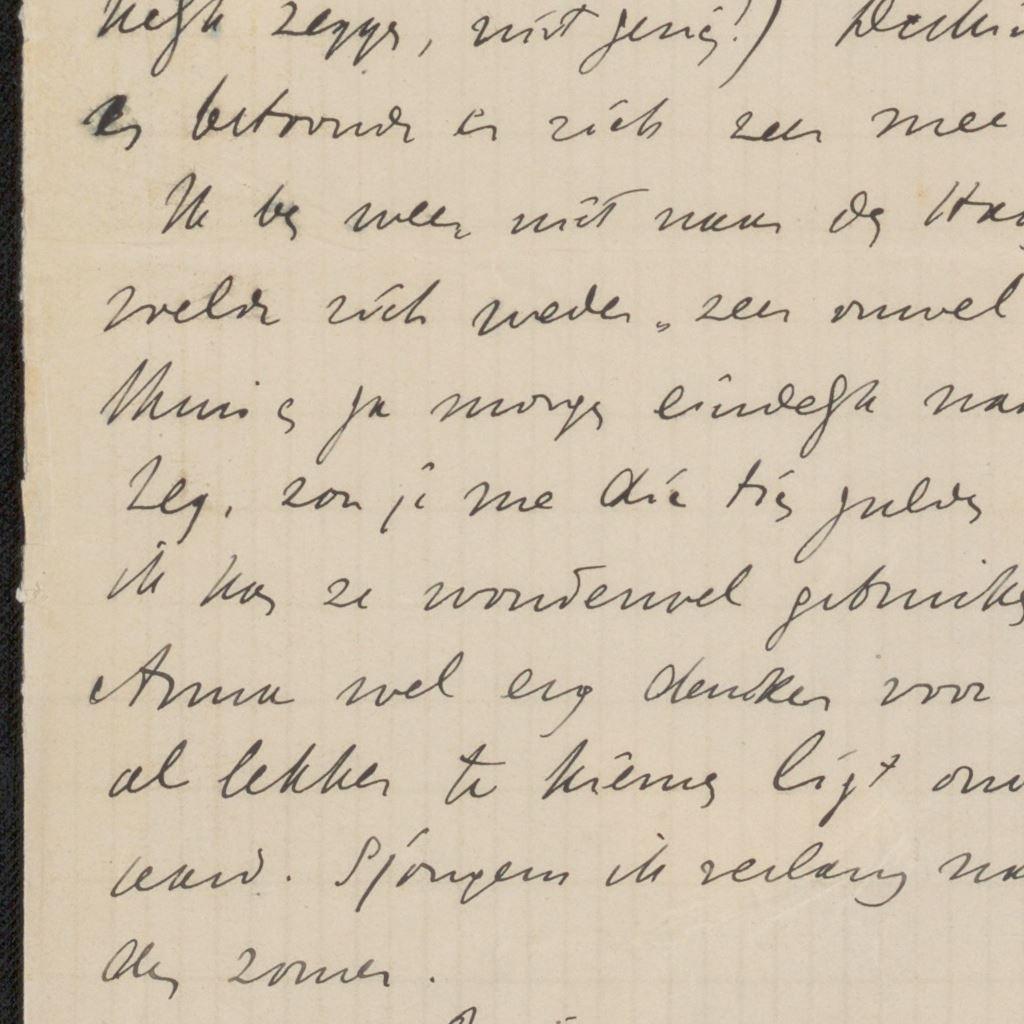 zeggen, niet genig!)
en betoonde er zich zeer mee
Ik ben weer niet naar den Haag
voelde zich weder zeer onwel
thuis en ga morgen eindelijk naar
Zeg, zou je me die tien gulden
ik kan ze wonderwel gebruiken
Anna wel erg danken voor
al lekker te kiemen ligt
aard. Sjongens ik verlang naar
den zomer.